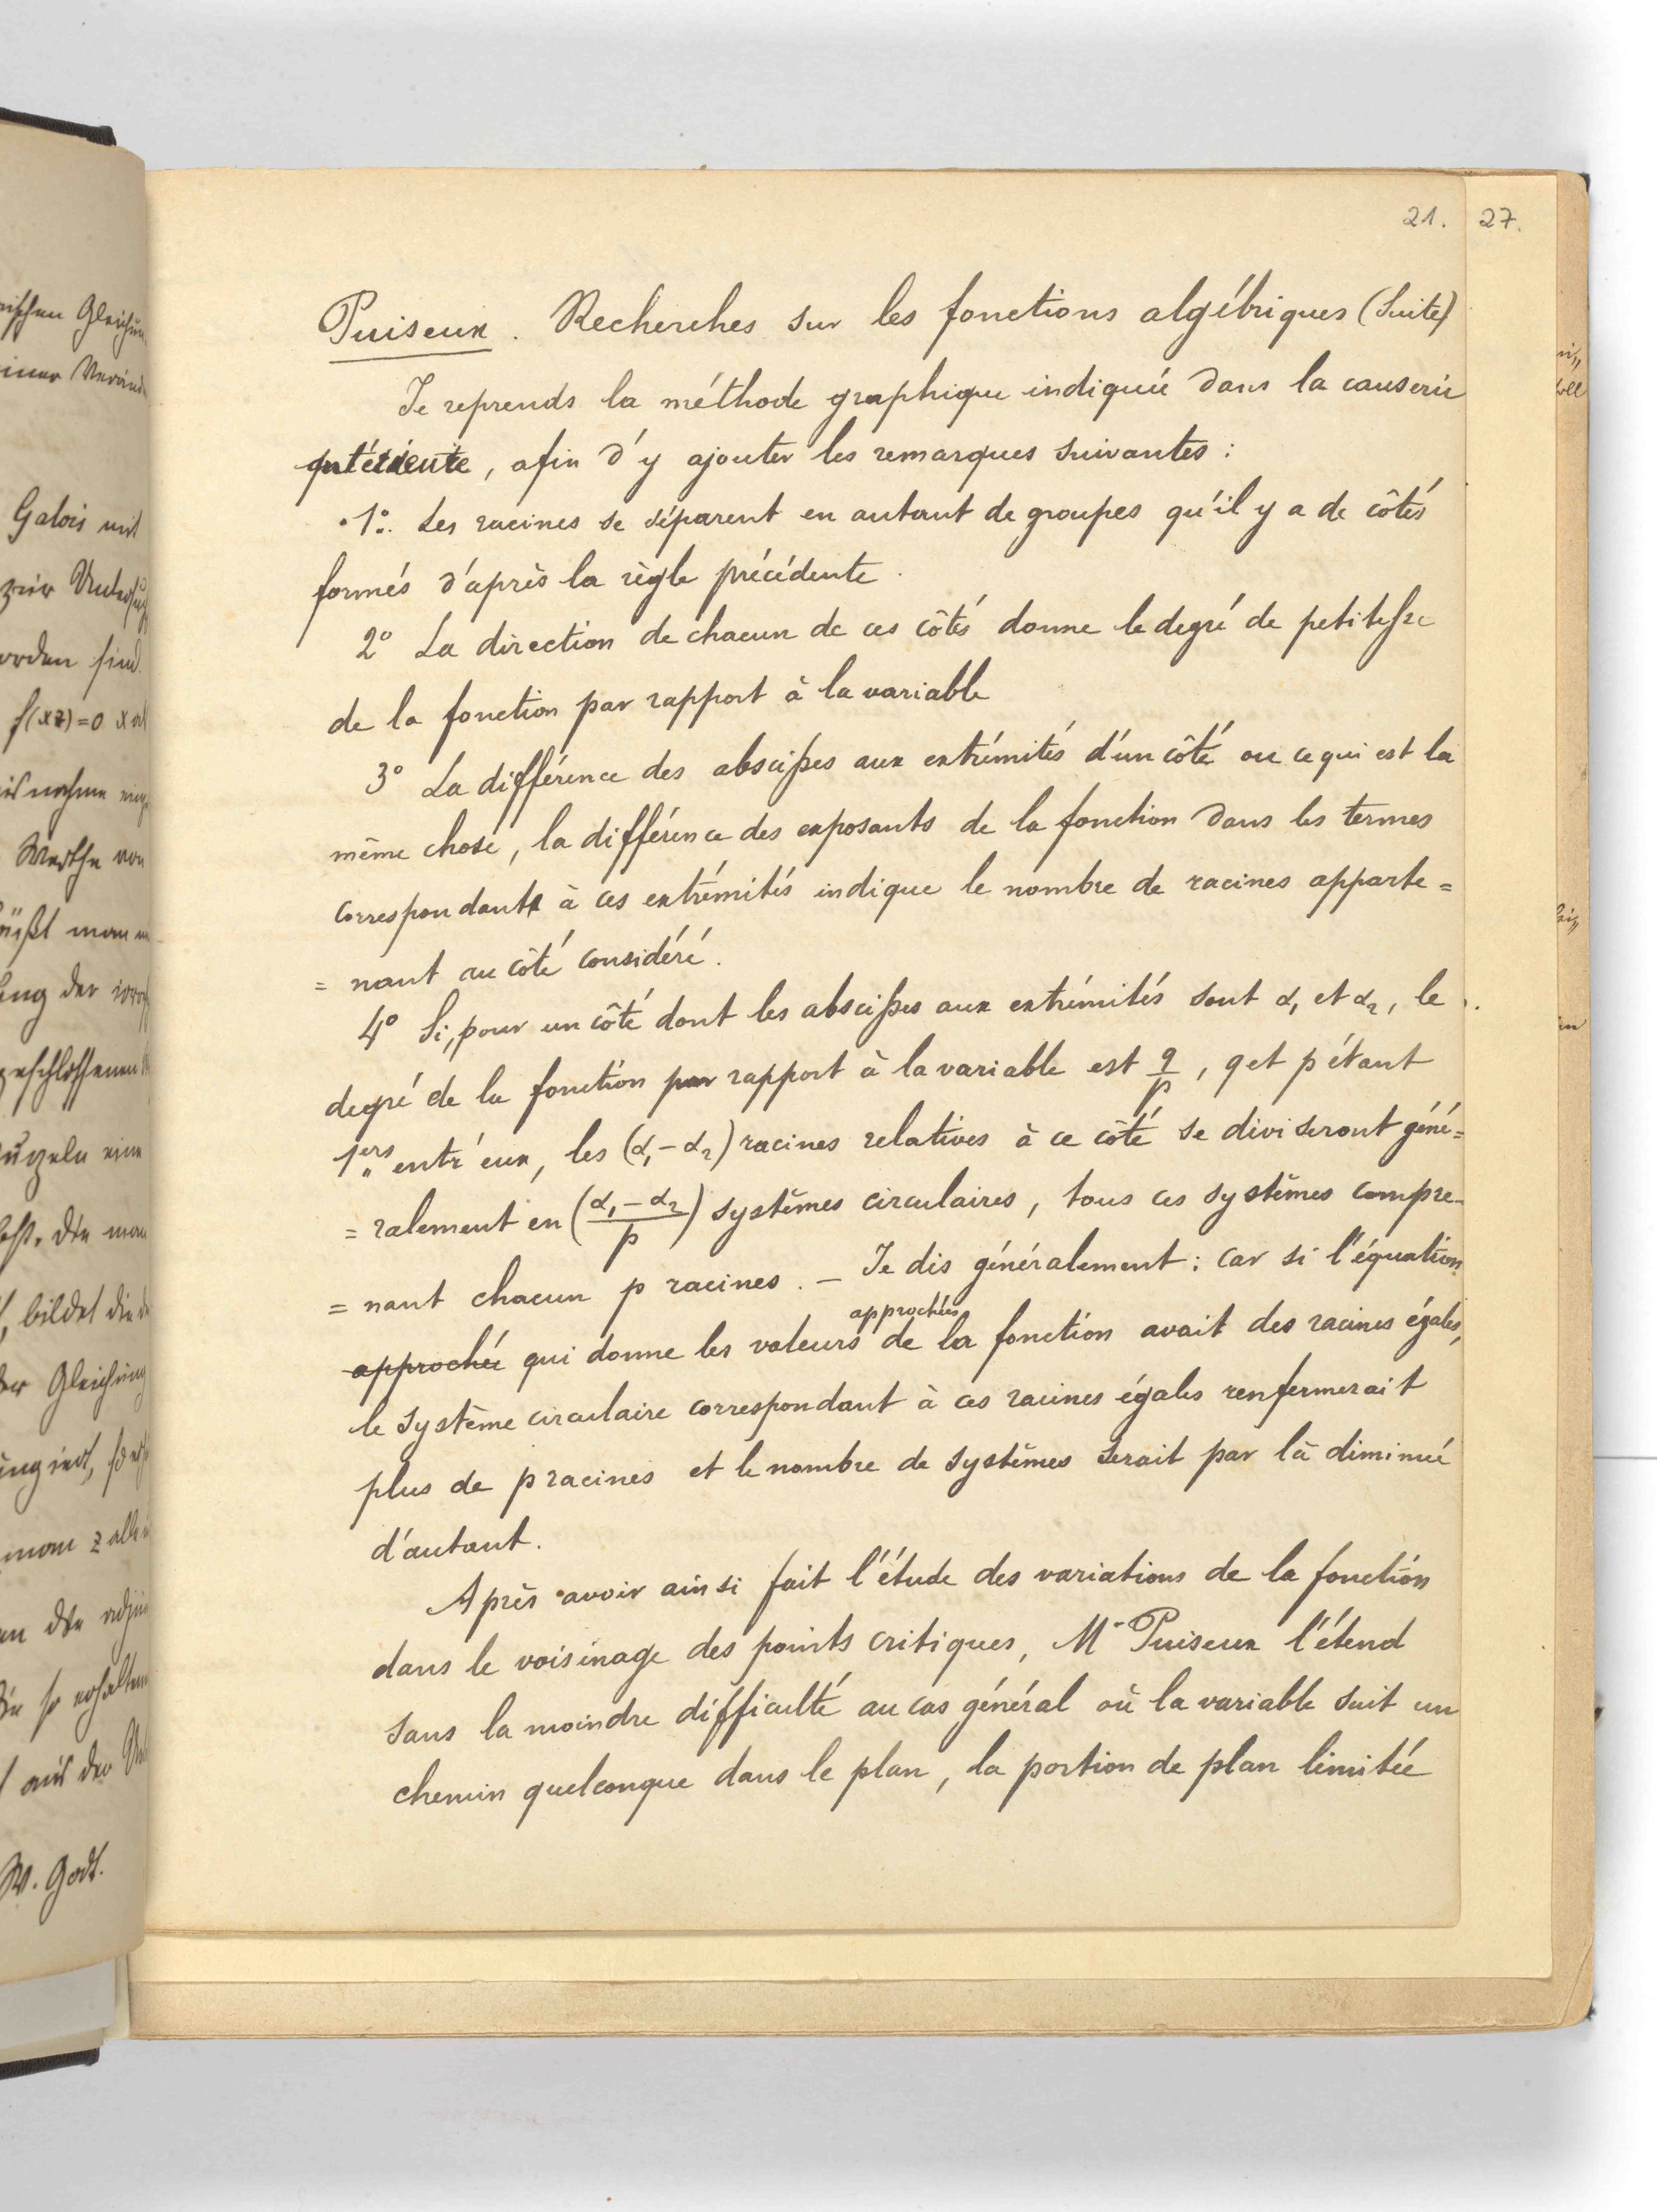 21. 27.
Puiseux. Recherches sur les fonctions algébriques (Suite)
Je reprends la méthode graphique indiquée dans la causerie
, afin d'y ajouter les remarques suivantes :
1º. Les racines se séparent en autant de groupes qu'il y a de côtés
formés d'après la règle précédente.
2º La direction de chacun de ces côtés donne le degré de petitesse
de la fonction par rapport à la variable
3º La différence des abscisses aux extrémités d'un côté ou ce qui est la
même chose, la différence des exposants de la fonction dans les termes
correspondants à ces extrémités indique le nombre de racines apparte=
= nant au côté considéré.
4º Si, pour un côté dont les abscisses aux extrémités sont α₁ et α₂, le
degré de la fonction par rapport à la variable est q/p, q et p étant
1ers entr'eux, les (α₁ − α₂) racines relatives à ce côté se diviseront géné=
= ralement en ((α₁ − α₂)/p) systèmes circulaires, tous ces systèmes compre-
= nant chacun p racines. — Je dis généralement : car si l'équation
approchées
approchée qui donne les valeurs de la fonction avait des racines égales,
le système circulaire correspondant à ces racines égales renfermerait
plus de p racines et le nombre de systèmes serait par là diminué
d'autant.
Après avoir ainsi fait l'étude des variations de la fonction
dans le voisinage des points critiques, Mr Puiseux l'étend
sans la moindre difficulté au cas général où la variable suit un
chemin quelconque dans le plan, la portion de plan limitée
Galois mit
f(xz)=0
W. Godt.